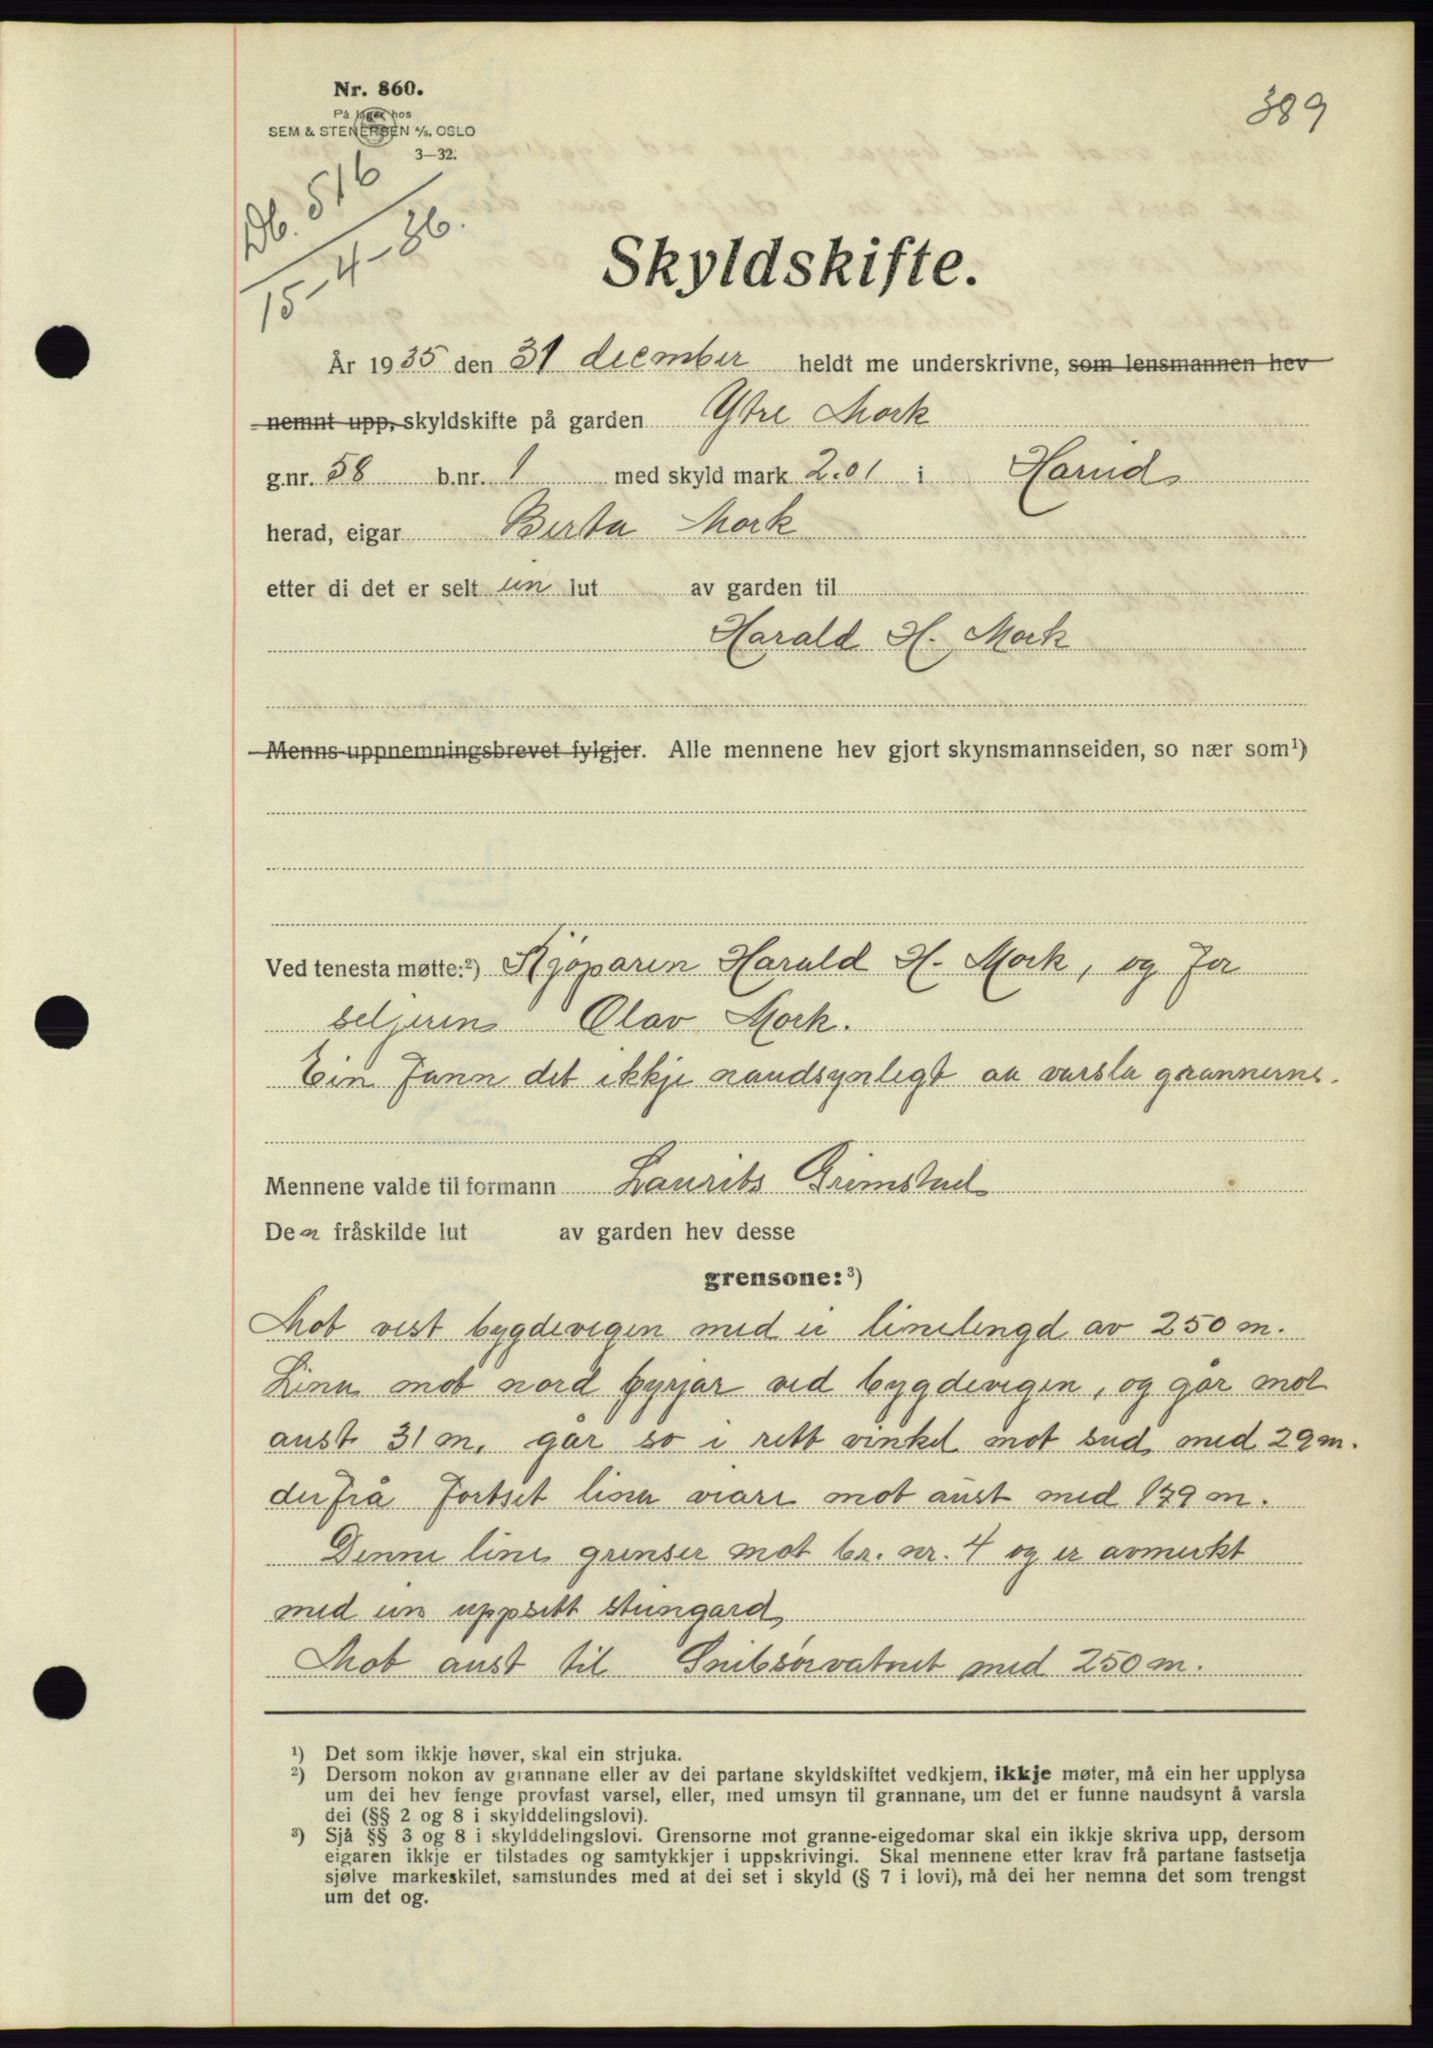 Nr. 860.
På lager hos
SEM & STENERSEN A/S, OSLO
3—32.
389
Db. 516
15-4-36.
Skyldskifte.
År 1935 den 31 decmber heldt me underskrivne, som lensmannen hev
nemnt upp, skyldskifte på garden Ytre Mork
g.nr. 58 b.nr. 1 med skyld mark 2.01 i Hareid
herad, eigar Berta Mork
etter di det er selt ein lut av garden til
Harald H. Mork
Menns-uppnemningsbrevet fylgjer. Alle mennene hev gjort skynsmannseiden, so nær som¹)
Ved tenesta møtte:²) Kjøparen Harald H. Mork, og for
seljeren Olav Mork.
Ein fann det ikkje naudsynlegt aa varsla grannerne.
Mennene valde til formann Laurits Grimstad
Den fråskilde lut av garden hev desse
grensone:³)
Mot vest bygdevegen med ei linelengd av 250 m.
Lina mot nord byrjar ved bygdevegen, og går mot
aust 31 m, går so i rett vinkel mot sud med 29 m.
derfrå fortset lina viare mot aust med 179 m.
Denne line grenser mot br. nr. 4 og er avmerkt
med ein uppsett steingard
Mot aust til Snibsørvatnet med 250 m.
¹) Det som ikkje høver, skal ein strjuka.
²) Dersom nokon av grannane eller av dei partane skyldskiftet vedkjem, ikkje møter, må ein her upplysa
um dei hev fenge provfast varsel, eller, med umsyn til grannane, um det er funne naudsynt å varsla
dei (§§ 2 og 8 i skylddelingslovi).
³) Sjå §§ 3 og 8 i skylddelingslovi. Grensorne mot granne-eigedomar skal ein ikkje skriva upp, dersom
eigaren ikkje er tilstades og samtykkjer i uppskrivingi. Skal mennene etter krav frå partane fastsetja
sjølve markeskilet, samstundes med at dei set i skyld (§ 7 i lovi), må dei her nemna det som trengst
um det og.